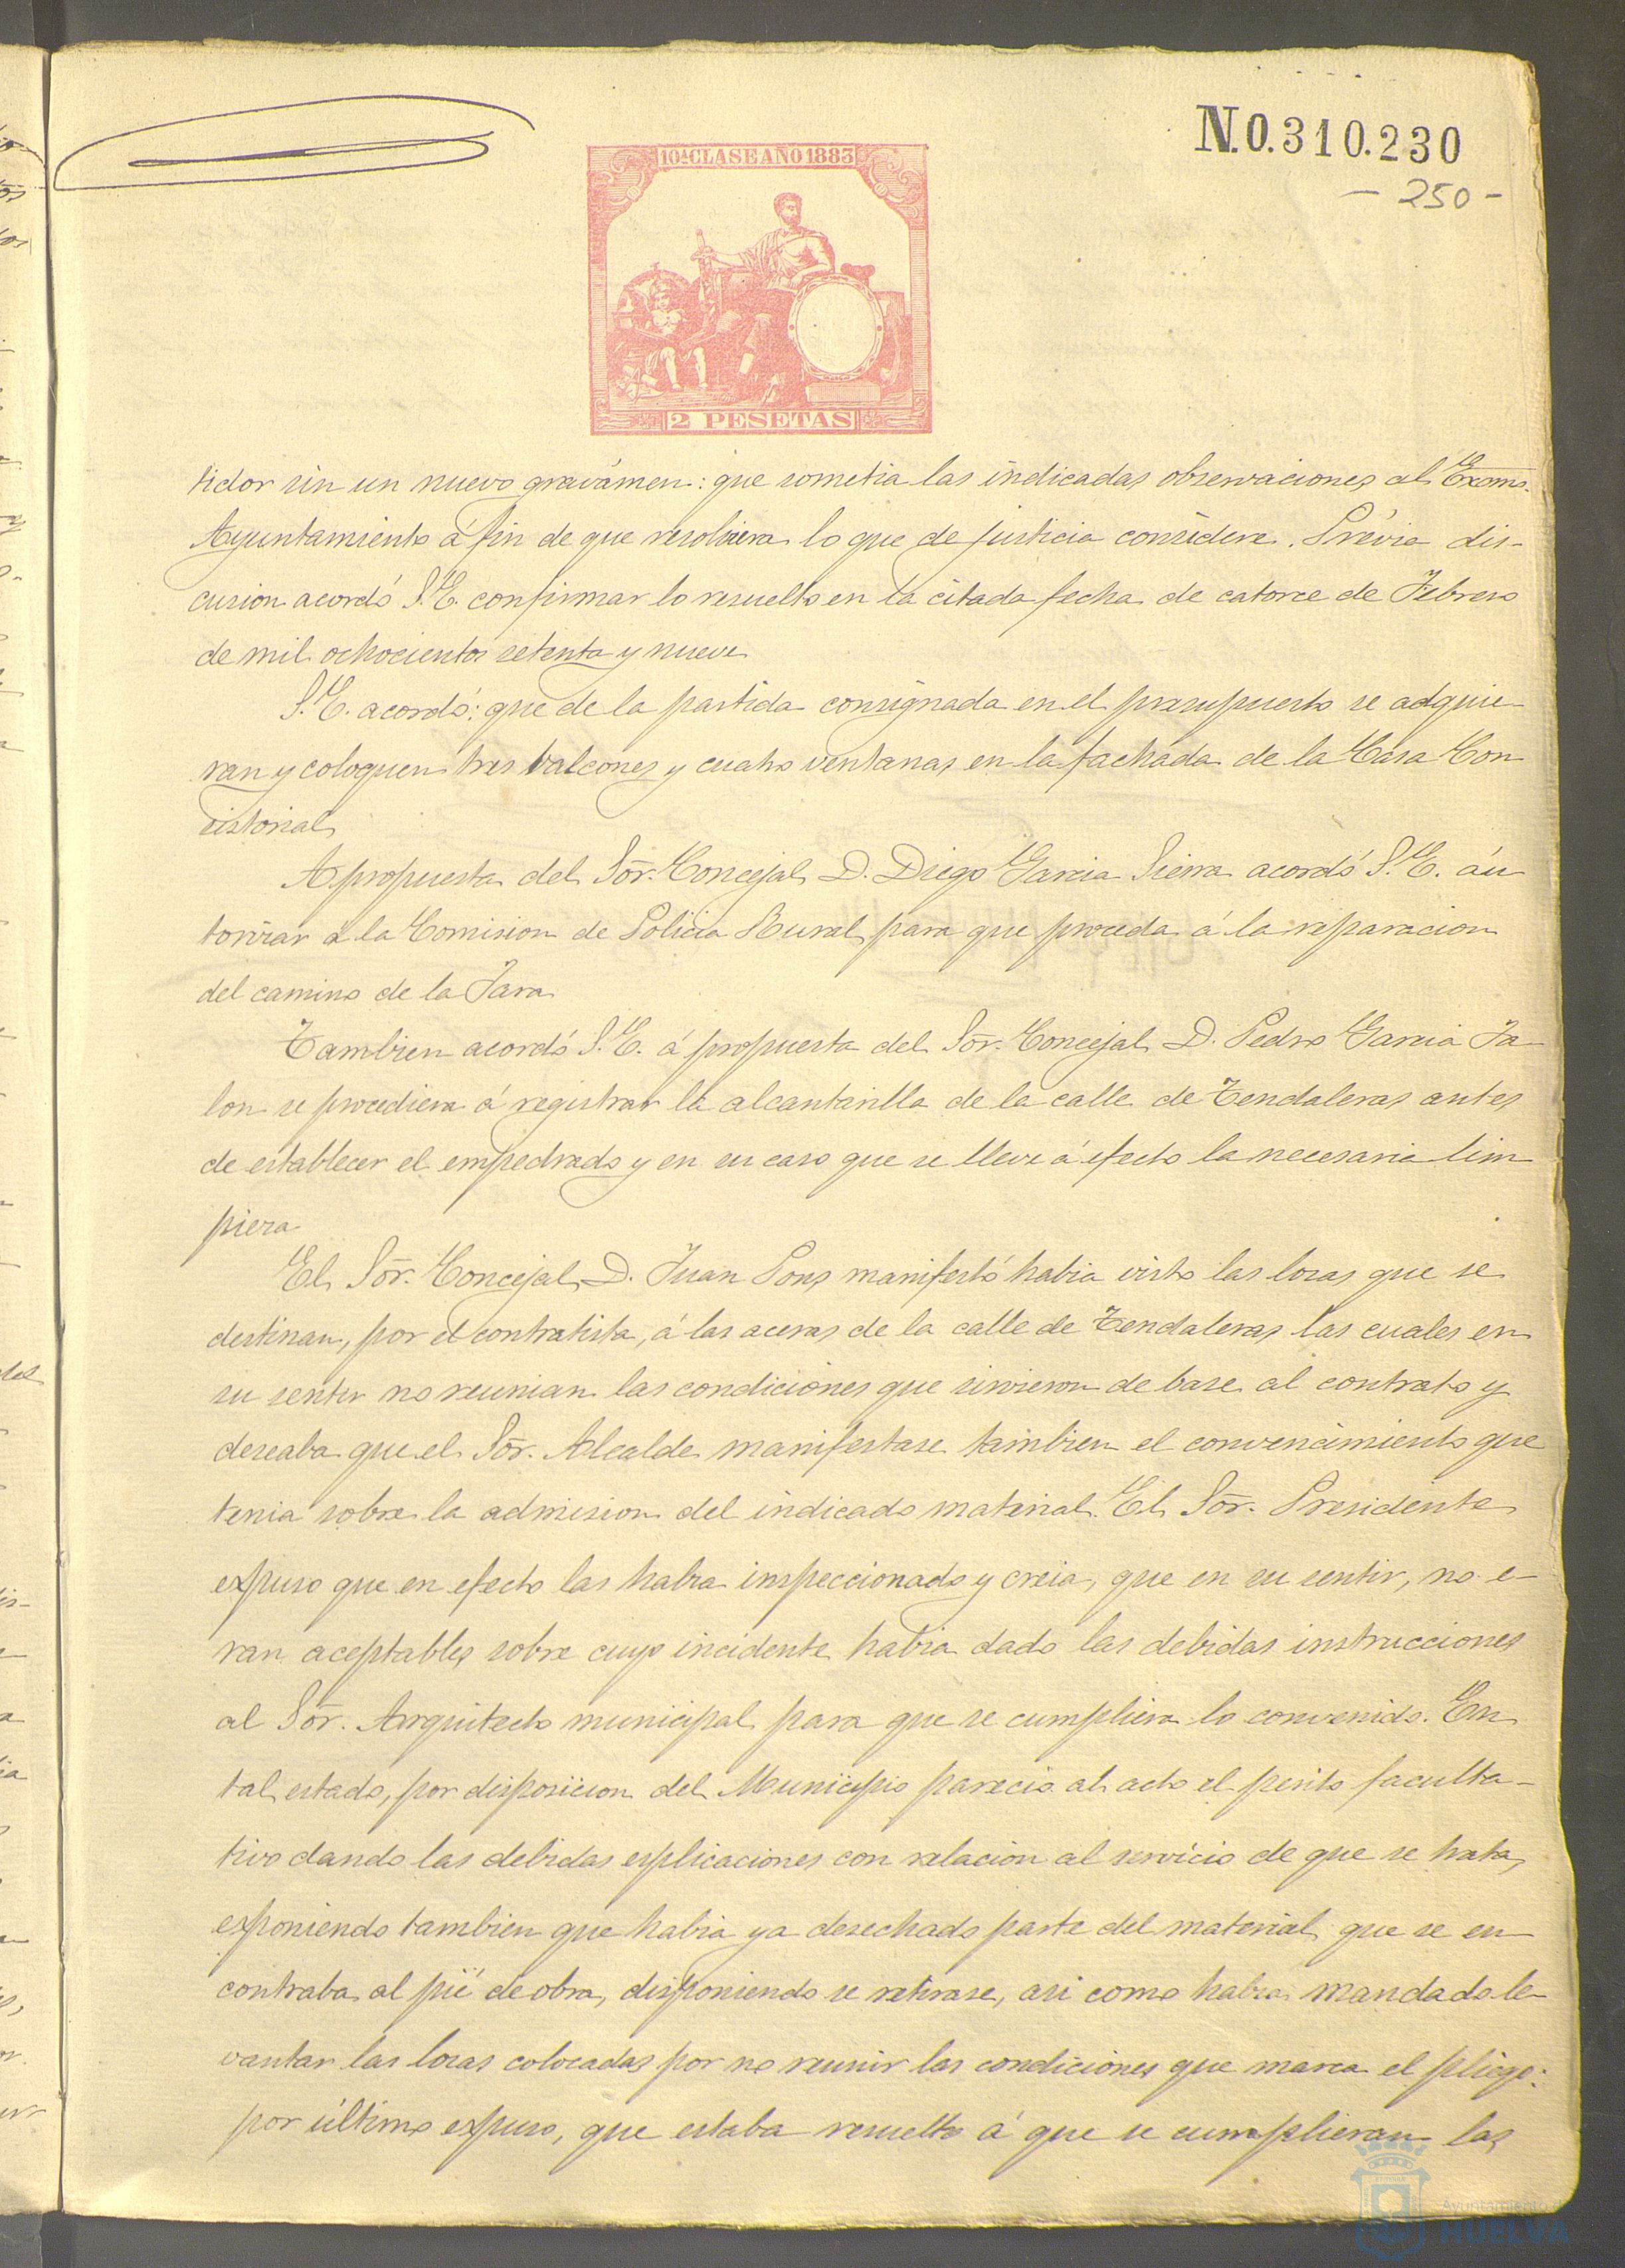 N.0.310.230
- 250 -
10ª CLASE AÑO 1883
2 PESETAS
tidor sin un nuevo gravámen: que sometia las indicadas observaciones al Excmo.
Ayuntamiento á fin de que resolviera lo que de justicia considere. Prévia dis-
cusion acordó S.E. confirmar lo resuelto en la citada fecha de catorce de Febrero
de mil ochocientos setenta y nueve
S.E. acordó: que de la partida consignada en el presupuesto se adquie-
ran y coloquen tres balcones y cuatro ventanas en la fachada de la Casa Con
sistorial
A propuesta del Sōr. Concejal D. Diego Garcia Sierra acordó S.E. áu
torizar á la Comision de Policia Rural para que proceda á la reparacion
del camino de la Jara
Tambien acordó S.E. á propuesta del Sōr. Concejal D. Pedro Garcia Ja-
lon se procediera á registrar la alcantarilla de la calle de Tendaleras antes
de establecer el empedrado y en su caso que se lleve á efecto la necesaria lim
pieza
El Sōr. Concejal D. Juan Pons manifestó habia visto las losas que se
destinan, por el contratista, á las aceras de la calle de Tendaleras las cuales en
su sentir no reunian las condiciones que sirvieron de base al contrato y
deseaba que el Sōr. Alcalde manifestase tambien el convencimiento que
tenia sobre la admision del indicado material. El Sōr. Presidente
expuso que en efecto las habia inspeccionado y creia, que en su sentir, no e-
ran aceptables sobre cuyo incidente habia dado las debidas instrucciones
al Sōr. Arquitecto municipal para que se cumpliera lo convenido. En
tal estado, por disposicion del Municipio parecio al acto el perito faculta-
tivo dando las debidas esplicaciones con relacion al servicio de que se trata,
esponiendo tambien que habia ya desechado parte del material que se en
contraba al pié de obra, disponiendo se retirase, asi como habia mandado le-
vantar las losas colocadas por no reunir las condiciones que marca el pliego:
por último expuso, que estaba resuelto á que se cumplieran las
Ayuntamiento
HUELVA